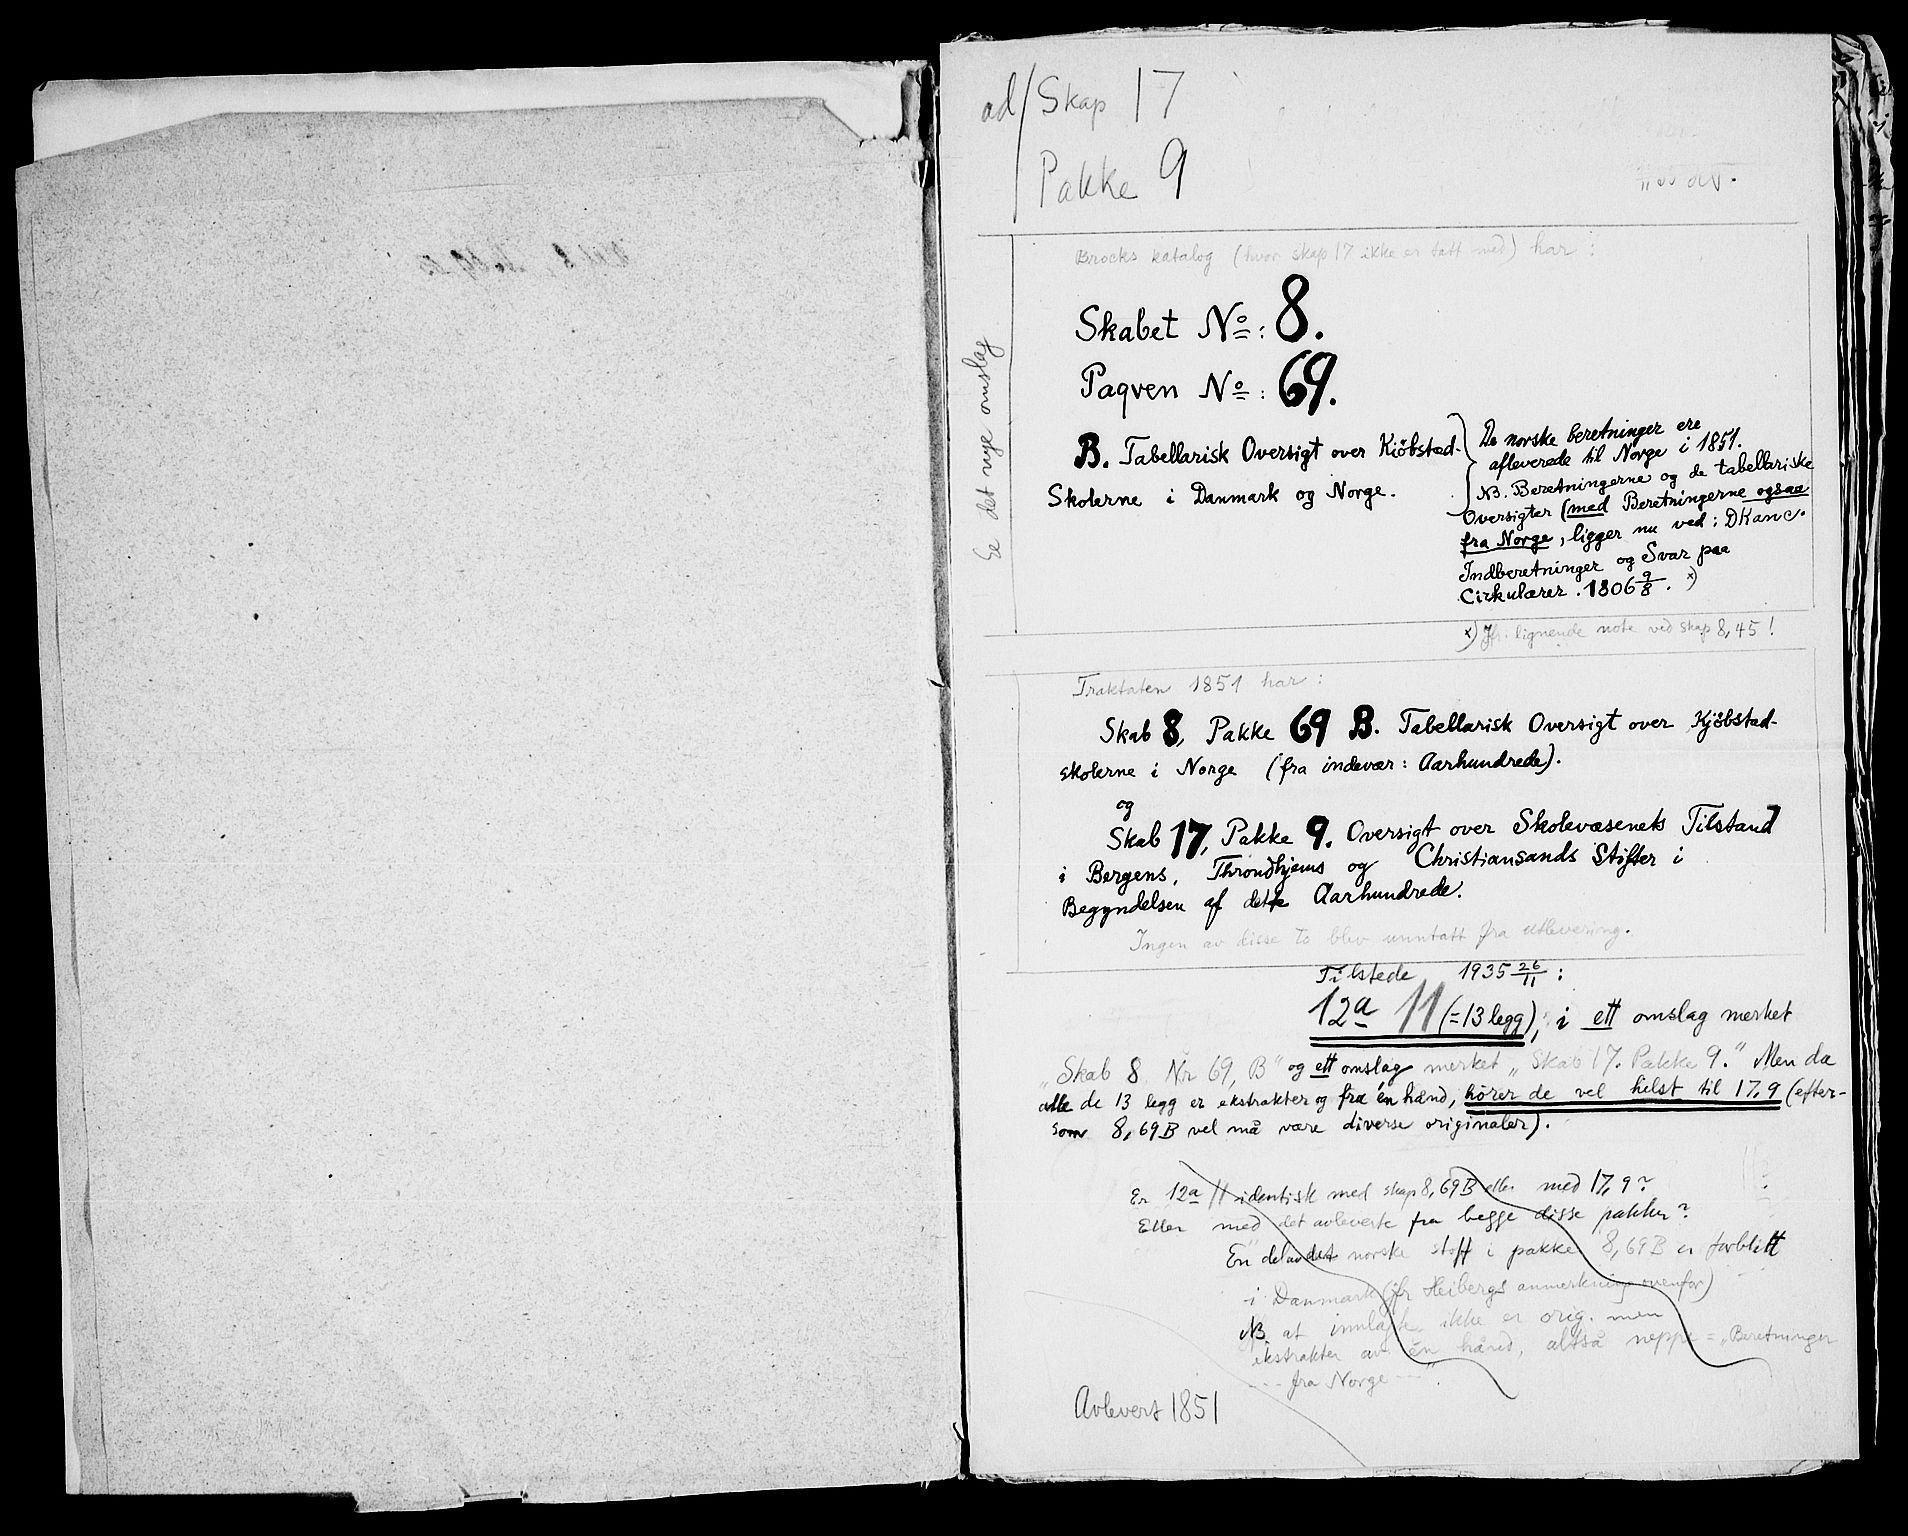 ad/ Skap 17
Pakke 9
Brocks katalog (hvor skap 17 ikke er tatt med) har:
Se det nye omslag
Skabet No: 8.
Paqven No: 69.
B. Tabellarisk Oversigt over Kiöbstad-
Skolerne i Danmark og Norge.
De norske beretninger ere
afleverede til Norge i 1851.
NB. Beretningerne og de tabellariske
Oversigter (med Beretningerne ogsaa
fra Norge, ligger nu ved: DKanc.
Indberetninger og Svar paa
Cirkulærer. 1806 9/8. x)
x) Jfr. lignende note ved skap 8, 45!
Traktaten 1851 har:
Skab 8, Pakke 69 B. Tabellarisk Oversigt over Kjöbstad-
skolerne i Norge (fra indevær: Aarhundrede).
og
Skab 17, Pakke 9. Oversigt over Skolevæsenets Tilstand
i Bergens, Throndhjems og Christiansands Stifter i
Begyndelsen af dette Aarhundrede.
Ingen av disse to blev unntatt fra utlevering.
Tilstede 1935 26/11:
12a 11 (= 13 legg), i ett omslag merket
"Skab 8 Nr 69, B" og ett omslag merket "Skab 17. Pakke 9." Men da
alle de 13 legg er ekstrakter og fra én hånd, hører de vel helst til 17, 9 (efter-
som 8, 69B vel må være diverse originaler).
Er 12a 11 identisk med skap 8, 69B eller med 17, 9?
Eller med det avleverte fra begge disse pakker?
En del av det norske stoff i pakke 8, 69B er forblitt
i Danmark (jfr Heibergs anmerkning ovenfor)
NB. at innlagte ikke er orig. men
ekstrakter av én hånd, altså neppe = "Beretninger
--- fra Norge ---".
Avlevert 1851